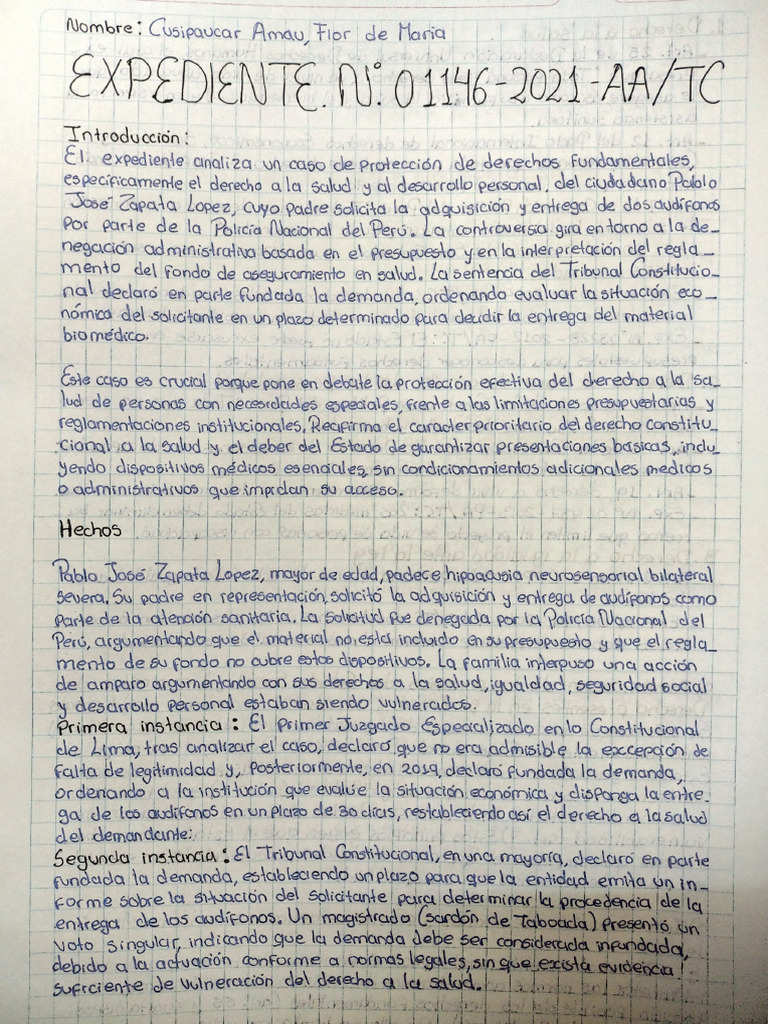 Nombre: Cusipaucar Amau, Flor de Maria
EXPEDIENTE. N.° 01146-2021-AA/TC
Introducción:
El expediente analiza un caso de protección de derechos fundamentales,
específicamente el derecho a la salud y al desarrollo personal, del ciudadano Pablo
José Zapata Lopez, cuyo padre solicita la adquisición y entrega de dos audífonos
por parte de la Policía Nacional del Perú. La controversia gira en torno a la de-
negación administrativa basada en el presupuesto y en la interpretación del regla-
mento del fondo de aseguramiento en salud. La sentencia del Tribunal Constitucio-
nal declaró en parte fundada la demanda, ordenando evaluar la situación eco-
nómica del solicitante en un plazo determinado para decidir la entrega del material
biomédico.
Este caso es crucial porque pone en debate la protección efectiva del derecho a la sa-
lud de personas con necesidades especiales, frente a las limitaciones presupuestarias y
reglamentaciones institucionales. Reafirma el caracter prioritario del derecho constitu-
cional a la salud y el deber del Estado de garantizar presentaciones basicas, inclu-
yendo dispositivos médicos esenciales, sin condicionamientos adicionales medicos
o administrativos que impidan su acceso.
Hechos
Pablo José Zapata Lopez, mayor de edad, padece hipoacusia neurosensorial bilateral
severa. Su padre en representación, solicitó la adquisición y entrega de audífonos como
parte de la atención sanitaria. La solicitud fue denegada por la Policía Nacional del
Perú, argumentando que el material no está incluido en su presupuesto y que el regla-
mento de su fondo no cubre estos dispositivos. La familia interpuso una acción
de amparo argumentando con sus derechos a la salud, igualdad, seguridad social
y desarrollo personal estaban siendo vulnerados.
Primera instancia: El Primer Juzgado Especializado en lo Constitucional
de Lima, tras analizar el caso, declaró que no era admisible la excepción de
falta de legitimidad y, posteriormente, en 2019, declaró fundada la demanda,
ordenando a la institución que evalue la situación económica y disponga la entre-
ga de los audífonos en un plazo de 30 días, restableciendo así el derecho a la salud
del demandante.
Segunda instancia: El Tribunal Constitucional, en una mayoría, declaró en parte
fundada la demanda, estableciendo un plazo para que la entidad emita un in-
forme sobre la situación del solicitante para determinar la procedencia de la
entrega de los audífonos. Un magistrado (sardón de Taboada) presentó un
voto singular, indicando que la demanda debe ser considerada infundada,
debido a la actuación conforme a normas legales, sin que exista evidencia
suficiente de vulneración del derecho a la salud.